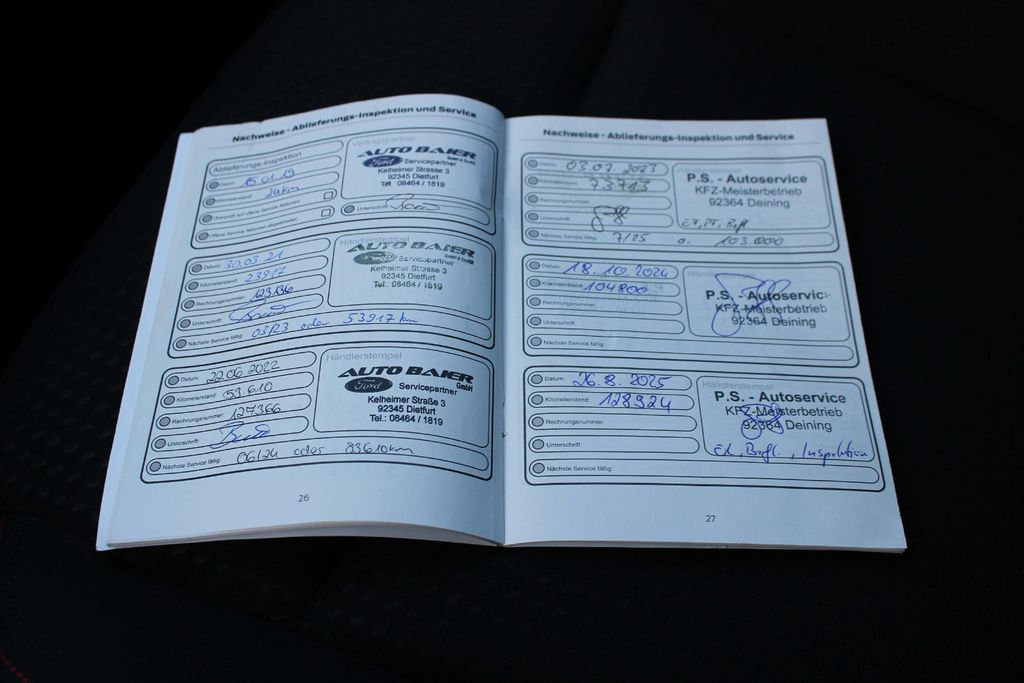 Nachweise - Ablieferungs-Inspektion und Service
Ablieferungs-Inspektion
Datum: 15.01.19
Kilometerstand: 24km
Überprüft auf offene Service Aktionen:
Offene Service Aktionen abgearbeitet:
Vertragspartner
AUTO BAIER
GmbH & Co.KG
Ford Servicepartner
Kelheimer Strasse 3
92345 Dietfurt
Tel. 08464 / 1819
Unterschrift:
Datum: 30.03.21
Kilometerstand: 23917
Rechnungsnummer: 123136
Unterschrift:
Nächste Service fällig: 03/23 oder 53917 km
Händlerstempel
AUTO BAIER
GmbH & Co.KG
Servicepartner
Kelheimer Strasse 3
92345 Dietfurt
Tel.: 08464 / 1819
Datum: 22.06.2022
Kilometerstand: 53.610
Rechnungsnummer: 127366
Unterschrift:
Nächste Service fällig: 06/24 oder 83610km
Händlerstempel
AUTO BAIER
GmbH
Ford Servicepartner
Kelheimer Straße 3
92345 Dietfurt
Tel.: 08464 / 1819
26
Nachweise - Ablieferungs-Inspektion und Service
Datum: 03.07.2023
Kilometerstand: 73713
Rechnungsnummer:
Unterschrift:
Nächste Service fällig: 7/25 o. 103 000
P.S. - Autoservice
KFZ-Meisterbetrieb
92364 Deining
Datum: 18.10.2024
Kilometerstand: 104800
Rechnungsnummer:
Unterschrift:
Nächste Service fällig:
P.S. - Autoservice
KFZ-Meisterbetrieb
92364 Deining
Datum: 26.8.2025
Kilometerstand: 128924
Rechnungsnummer:
Unterschrift:
Nächste Service fällig:
Händlerstempel
P.S. - Autoservice
KFZ-Meisterbetrieb
92364 Deining
Inspektion
27